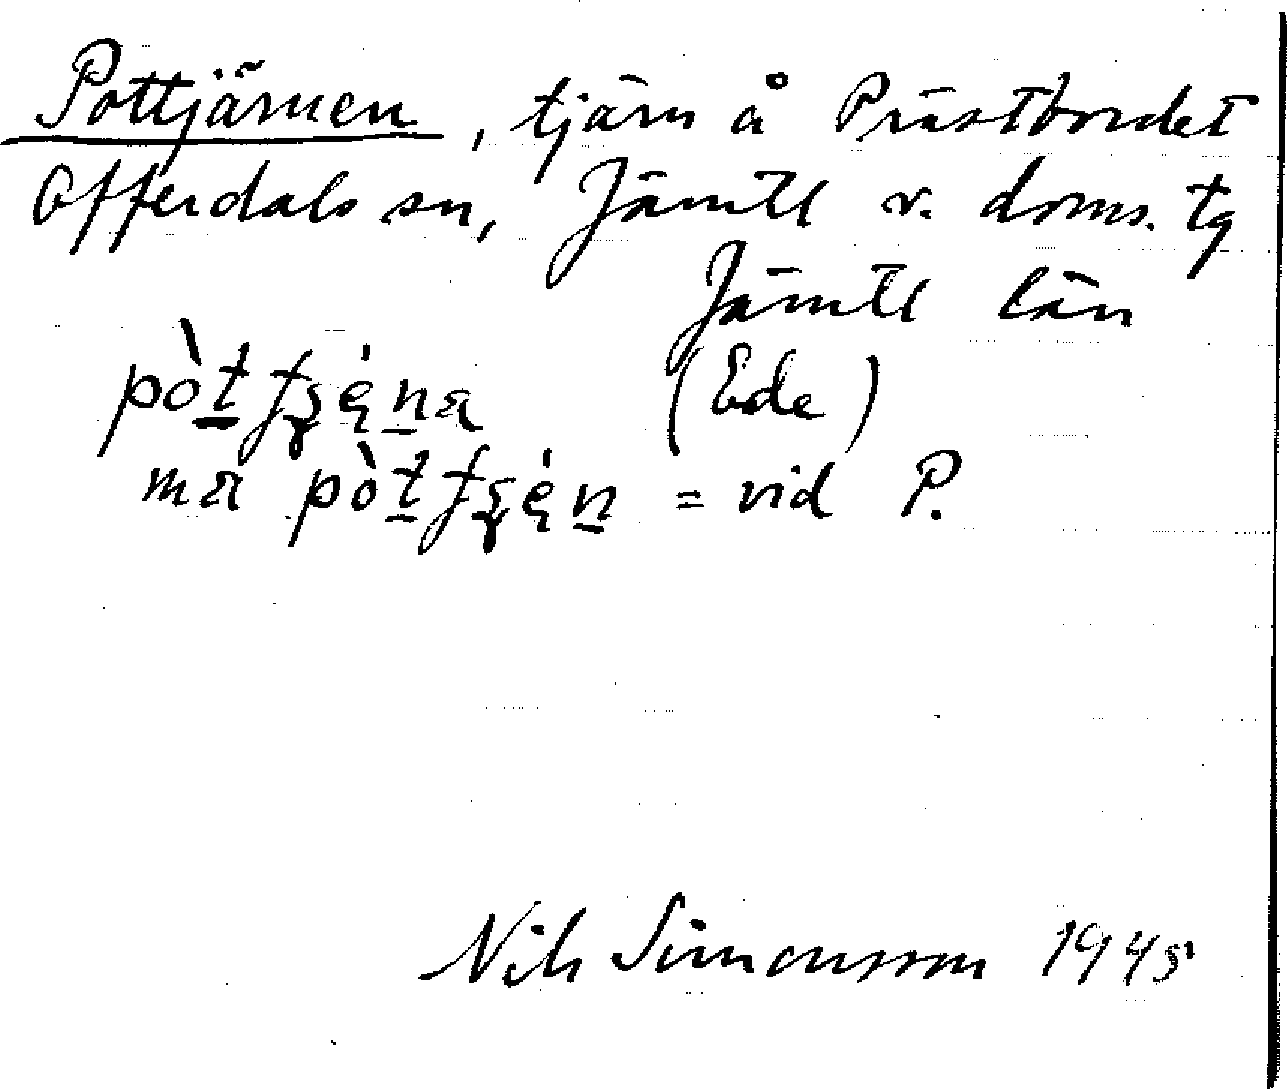 Pottjärnen, tjärn å Prästbordet
Offerdals sn, Jämtl v. doms. tg
Jämtl län
pòt̠ʄʂėn̠a (Ede)
ma pòt̠ʄʂėn̠ = vid P.
Nils Simonsson 1945